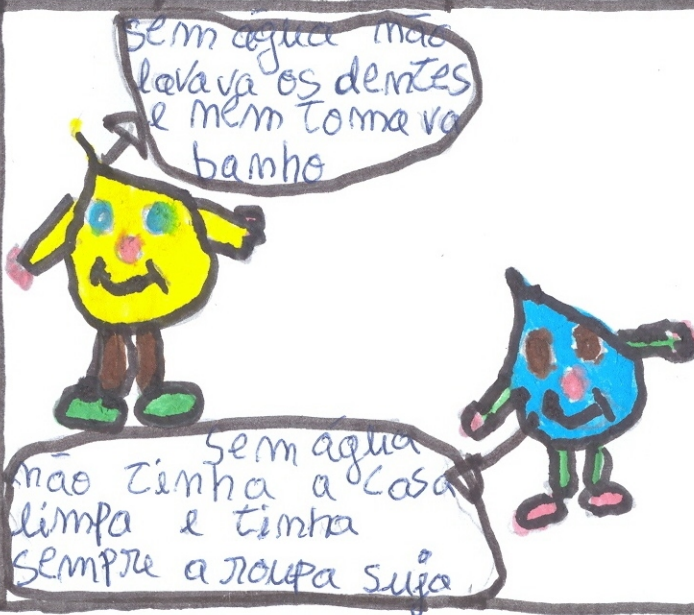 sem água não
lavava os dentes
e nem tomava
banho
sem água
não tinha a casa
limpa e tinha
sempre a roupa suja.